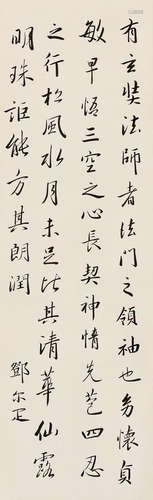 有玄奘法師者法門之領袖也幼懷貞
敏早悟三空之心長契神情先苞四忍
之行松風水月未足比其清華仙露
明珠詎能方其朗潤
鄧尔疋